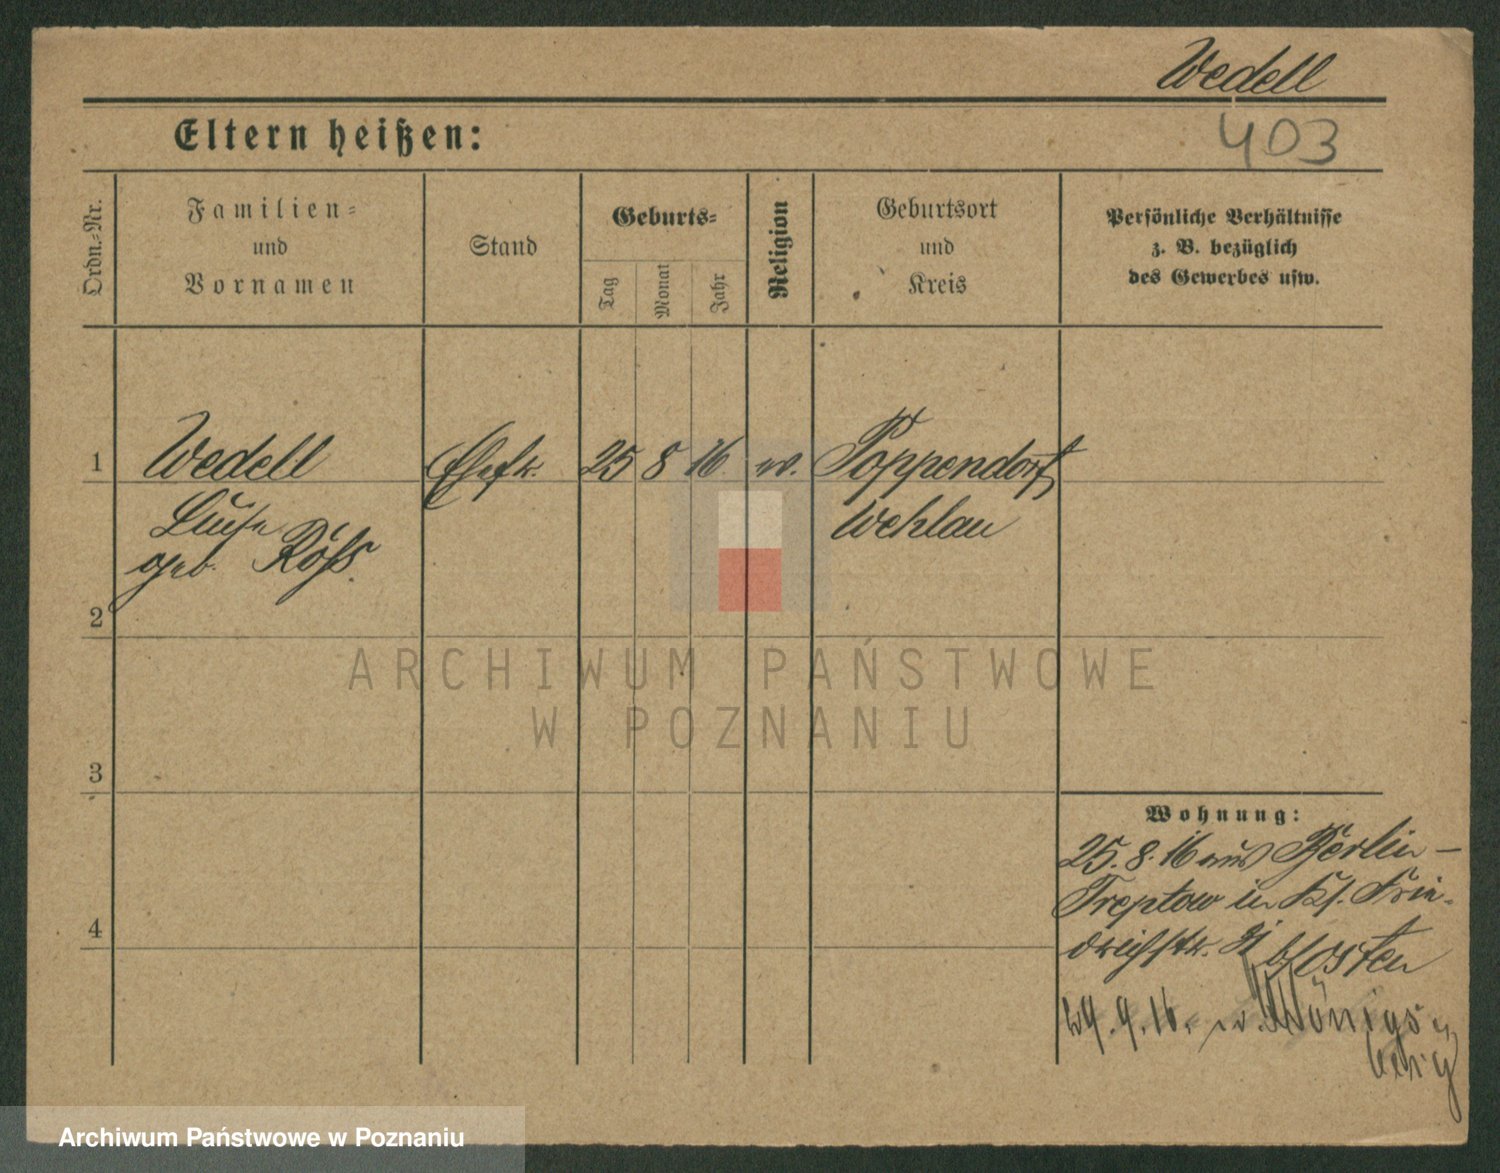 Wedell
Eltern heißen:
403
Ordn.-Nr.
Familien-
und
Vornamen
Stand
Geburts-
Tag
Monat
Jahr
Religion
Geburtsort
und
Kreis
Persönliche Verhältnisse
z. B. bezüglich
des Gewerbes usw.
1 Wedell Ehefr. 25 8 16 Poppendorf
Luise Wehlau
geb. Röhs
2
3
4
Wohnung:
25.8.16 aus Berlin-
Treptow in Frie-
drichstr. b/ Osten
29.9.16. Königs-
berg
ARCHIWUM PAŃSTWOWE
W POZNANIU
Archiwum Państwowe w Poznaniu